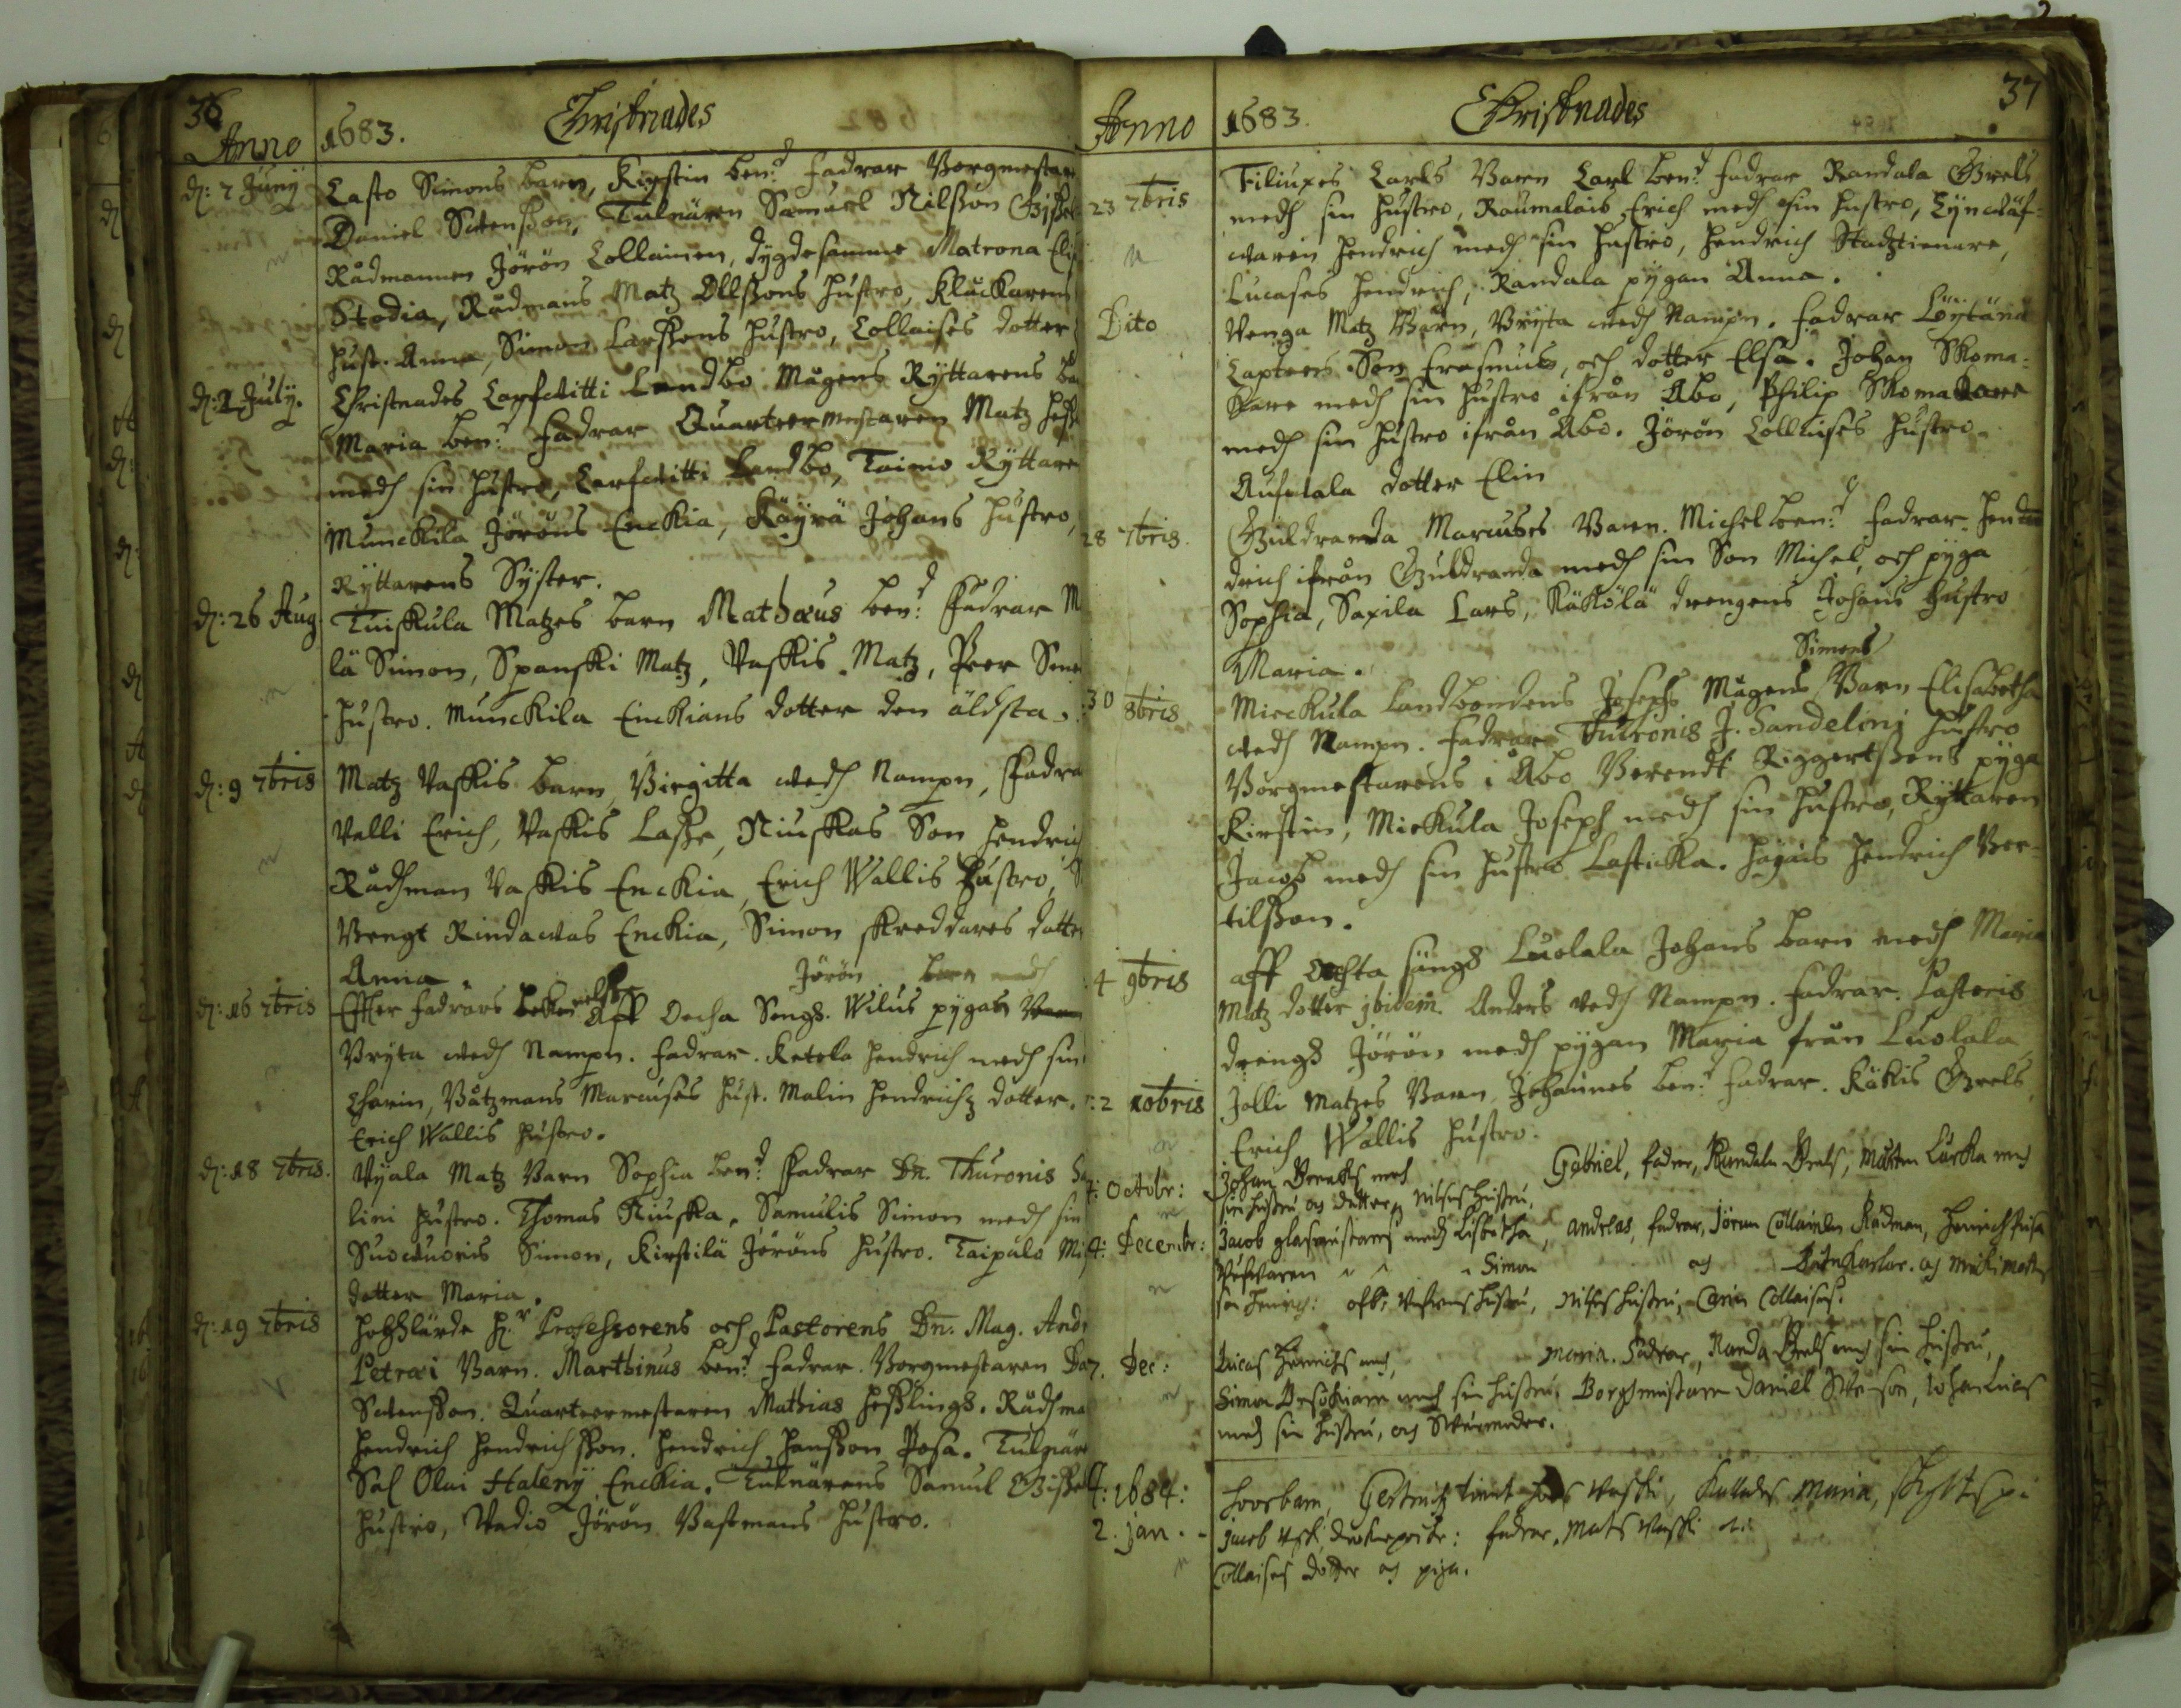 36
Anno 1683. Christnades
d: 7 Juny Casto Simons barn, Kirstin ben:d fadrar Borgmestar
Daniel Svensson, Tulnären Samuel Nilsson Gissel
Rådmannen Jörön Collainen, dygdesamme Matrona Elis
Stodia, Rådmans Matz Ollssons hustro, Kluckarens
hust. Anna, Simon Larssons hustro, Collaises dotter
d: 2 July. Christnades Carfvitti Landbo Mågens Ryttarens ba
Maria ben:d fadrar Quarteermestaren Matz Hess
medh sin hustro, Carfvitti Landbo, Taimo Ryttare
Munckila Jöröns Enckia, Käyrä Johans hustro,
Ryttarens Syster.
d: 26 Aug Tuiskula Matzes barn Mathæus ben:d ffadrar M
lä Simon, Spanski Matz, Vaskis Matz, Peer Sme
hustro. Munckila Enckians dotter den äldsta.
d: 9 7bris Matz Vaskis barn, Birgitta vedh Nampn, ffadra
Valli Erich, Vaskis Lasse, Niuskas Son Hendrich
Rådhman Vaskis Enckia, Erich Wallis hustro,
Bengt Rindawas Enckia, Simon skreddares dotte
Anna. Jörön barn vedh
d: 16 7bris Effter fadrars bekennelsse Aff Oecha Sengz. Wilus pygas
Bryta vedh Nampn. fadrar. Ketola Hendrich medh sin
Charin, Båtzmans Marcuses hust. Malin Hendrichz dotter.
Erich Wallis hustro.
d: 18 7bris. Vyala Matz Barn Sophia ben:d ffadrar Dn. Thuronis Sa
lini hustro. Thomas Niuska, Samulis Simon medh sin
Suovuoris Simon, Kirstilä Jöröns hustro. Taipalo Mi
dotter Maria.
d: 19 7bris Hoghlärde H:r Professorens och Pastorens Dn. Mag. And
Petræi Barn. Marthinus ben:d fadrar. Borgmestaren Da
Svensson. Quarteermestaren Mathias Hesslings. Rådhma
Hendrich Hendrichsson. Hendrich Hansson Posa. Tulnäre
Sal Olai Haleny Enckia. Tulnärens Samul Gissel
hustro, Vadio Jörön Bastmans hustro.
37
Anno 1683. Christnades
23 7bris Filiupes Carls Barn Carl ben:d fadrar Randala Grels
medh sin hustro, Raumalais Erich medh sin hustro, Lyndäf-
waren Hendrich medh sin hustro, Hendrich Stadztienare,
Lucases Hendrich, Randala pygan Anna.
Dito Venga Matz Barn, Bryta vedh Nampn. fadrar Löytänä
Capteens Son Erasmus, och dotter Elsa. Johan Skoma-
kare medh sin hustro ifrån Åbo, Philip Skomakare
medh sin hustro ifrån Åbo. Jörön Collaises hustro.
dotter Elin
28 7bris. Guldranda Marcuses Barn. Michel ben:d fadrar. Hen
drich ifrån Guldranda medh sin Son Michel, och pyga
Sophia, Saxila Lars, Käkölä drengens Johans hustro
Maria. Simons
30 8bris Mirckula Landbondens Josephs Mågens Barn Elisabetha
vedh Nampn. fadrar Thuronis J. Sandelinj hustro
Borgmestarens i Åbo Berendt Riggertssons pyga
Kirstin, Mirkula Joseph medh sin hustro, Ryttaren
Jacob medh sin hustro Lasticka. Hajais Hendrich Ber-
tilsson.
4 9bris aff Oechta sängz Luolala Johans barn medh Maria
Matz dotter jbidem. Anders vedh Nampn. fadrar. Pastoris
drengz Jörön medh pygan Maria från Luolala
2 10bris Jolli Matzes Barn Johannes ben:d fadrar. Käkis Grels
Erich Wallis hustro.
Octobr: Johan med Gabriel, fadrar, Randala Grels, Mårten Lurka med
sin hustru og dotter, Nilses hustru,
4: Decembr: Jacob glasmästares medh Lisbetha, Andreas, fadrar, Jöran Collainen Rådman, Henrich
Simon og og
son Henrich: hustru, Nilses hustru, Carin Collaises.
7. Dec: Lucas Henrichs med, Maria. Fadrar, Randa Grels med sin hustru,
Simon med sin hustru. Borghmästaren Daniel Svenson, Johan Lucas
med sin hustru, og Svärmoder.
A: 1684: Hoorbarn, Gertrutz hos Vaski, Kallades Maria,
2. jan. Jacob fadrar, Mats Vaski
Collaises dotter og piga.